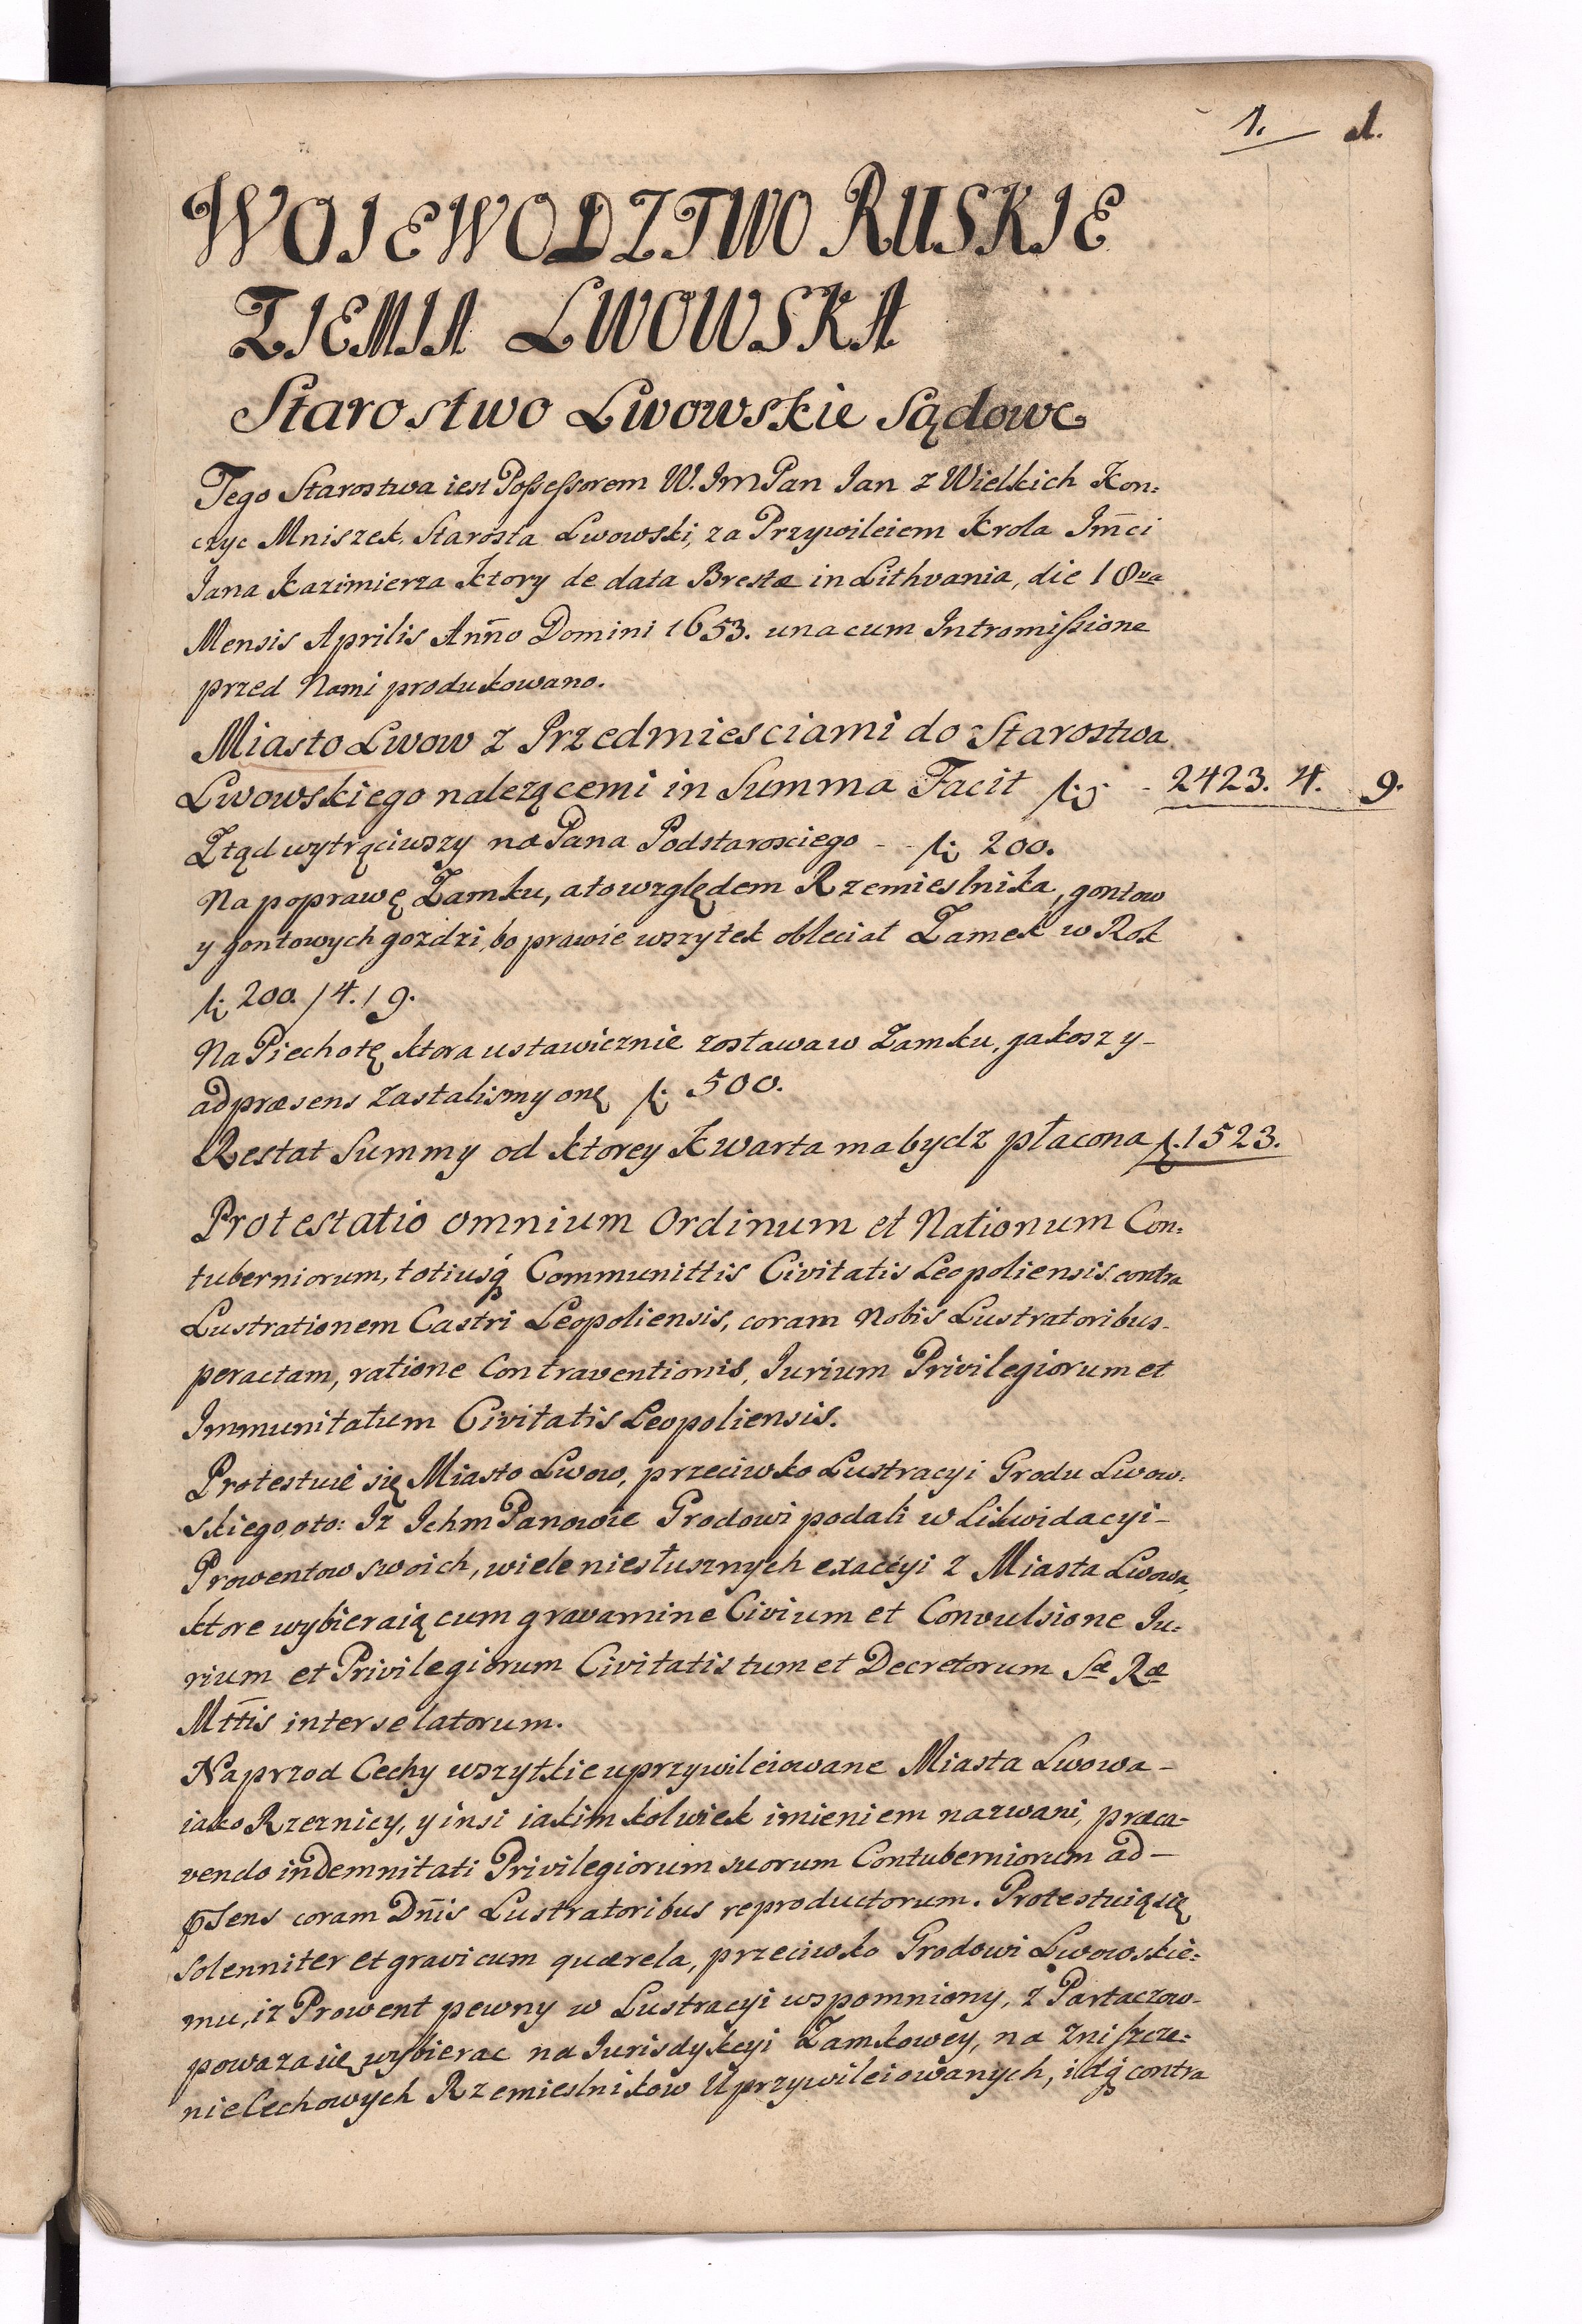 1. 1.
WOJEWODZTWO RUSKIE
ZIEMIA LWOWSKA
Starostwo Lwowskie Sądowe
Tego Starostwa iest Possessorem W. Im Pan Ian z Wielkich Kon:
czyc Mniszek, Starosta Lwowski, za Przywileiem Krola Im̄ci
Jana Kazimierza Ktory de data Brestæ in Lithvania, die 18va
Mensis Aprilis Ann̄o Domini 1653. una cum Intromissione
przed Nami produkowano.
Miasto Lwow z Przedmiesciami do Starostwa
Lwowskiego nalezącemi in Summa Facit f. - 2423. 4. 9.
Ztąd wytrąciwszy na Pana Podstarosciego - - f. 200.
Na poprawę Zamku, a to względem Rzemieslnika, gontow
y gontowych gozdzi, bo prawie wszytek obleciał Zamek w Rok
f. 200. / 4. / 9.
Na Piechotę ktora ustawicznie zostawa w Zamku, jakosz y -
ad præsens zastalismy onę f. 500.
Restat Summy od ktorey Kwarta ma bydz płacona f. 1523.
Protestatio omnium Ordinum et Nationum Con:
tuberniorum, totiusq́ Communittis Civitatis Leopoliensis contra
Lustrationem Castri Leopoliensis, coram Nobis Lustratoribus
peractam, ratione Contraventionis, Iurium Privilegiorum et
Immunitatum Civitatis Leopoliensis.
Protestuie się Miasto Lwow, przeciwko Lustracyi Grodu Lwow:
skiego oto: Iz Ichm Panowie Grodowi podali w Likwidacyi -
Prowentow swoich, wiele niesłusznych exaccyi z Miasta Lwowa,
ktore wybieraią cum gravamine Civium et Convulsione Iu:
rium et Privilegiorum Civitatis tum et Decretorum Sæ Ræ
Mtt̄is inter se latorum.
Naprzod Cechy wszytkie uprzywileiowane Miasta Lwowa -
iako Rzeznicy, y insi iakim kolwiek imieniem nazwani, præca-
vendo indemnitati Privilegiorum suorum Contuberniorum ad -
p̄sens coram Dn̄is Lustratoribus reproductorum. Protestuią się
Solenniter et gravi cum quærela, przeciwko Grodowi Lwowskie:
mu, iz Prowent pewny w Lustracyi wspomniony, z Partaczow -
powaza się wybierac na Iurisdykcyi Zamkowey, na Zniszcze:
nie Cechowych Rzemieslnikow Uprzywileiowanych, idq́ contra